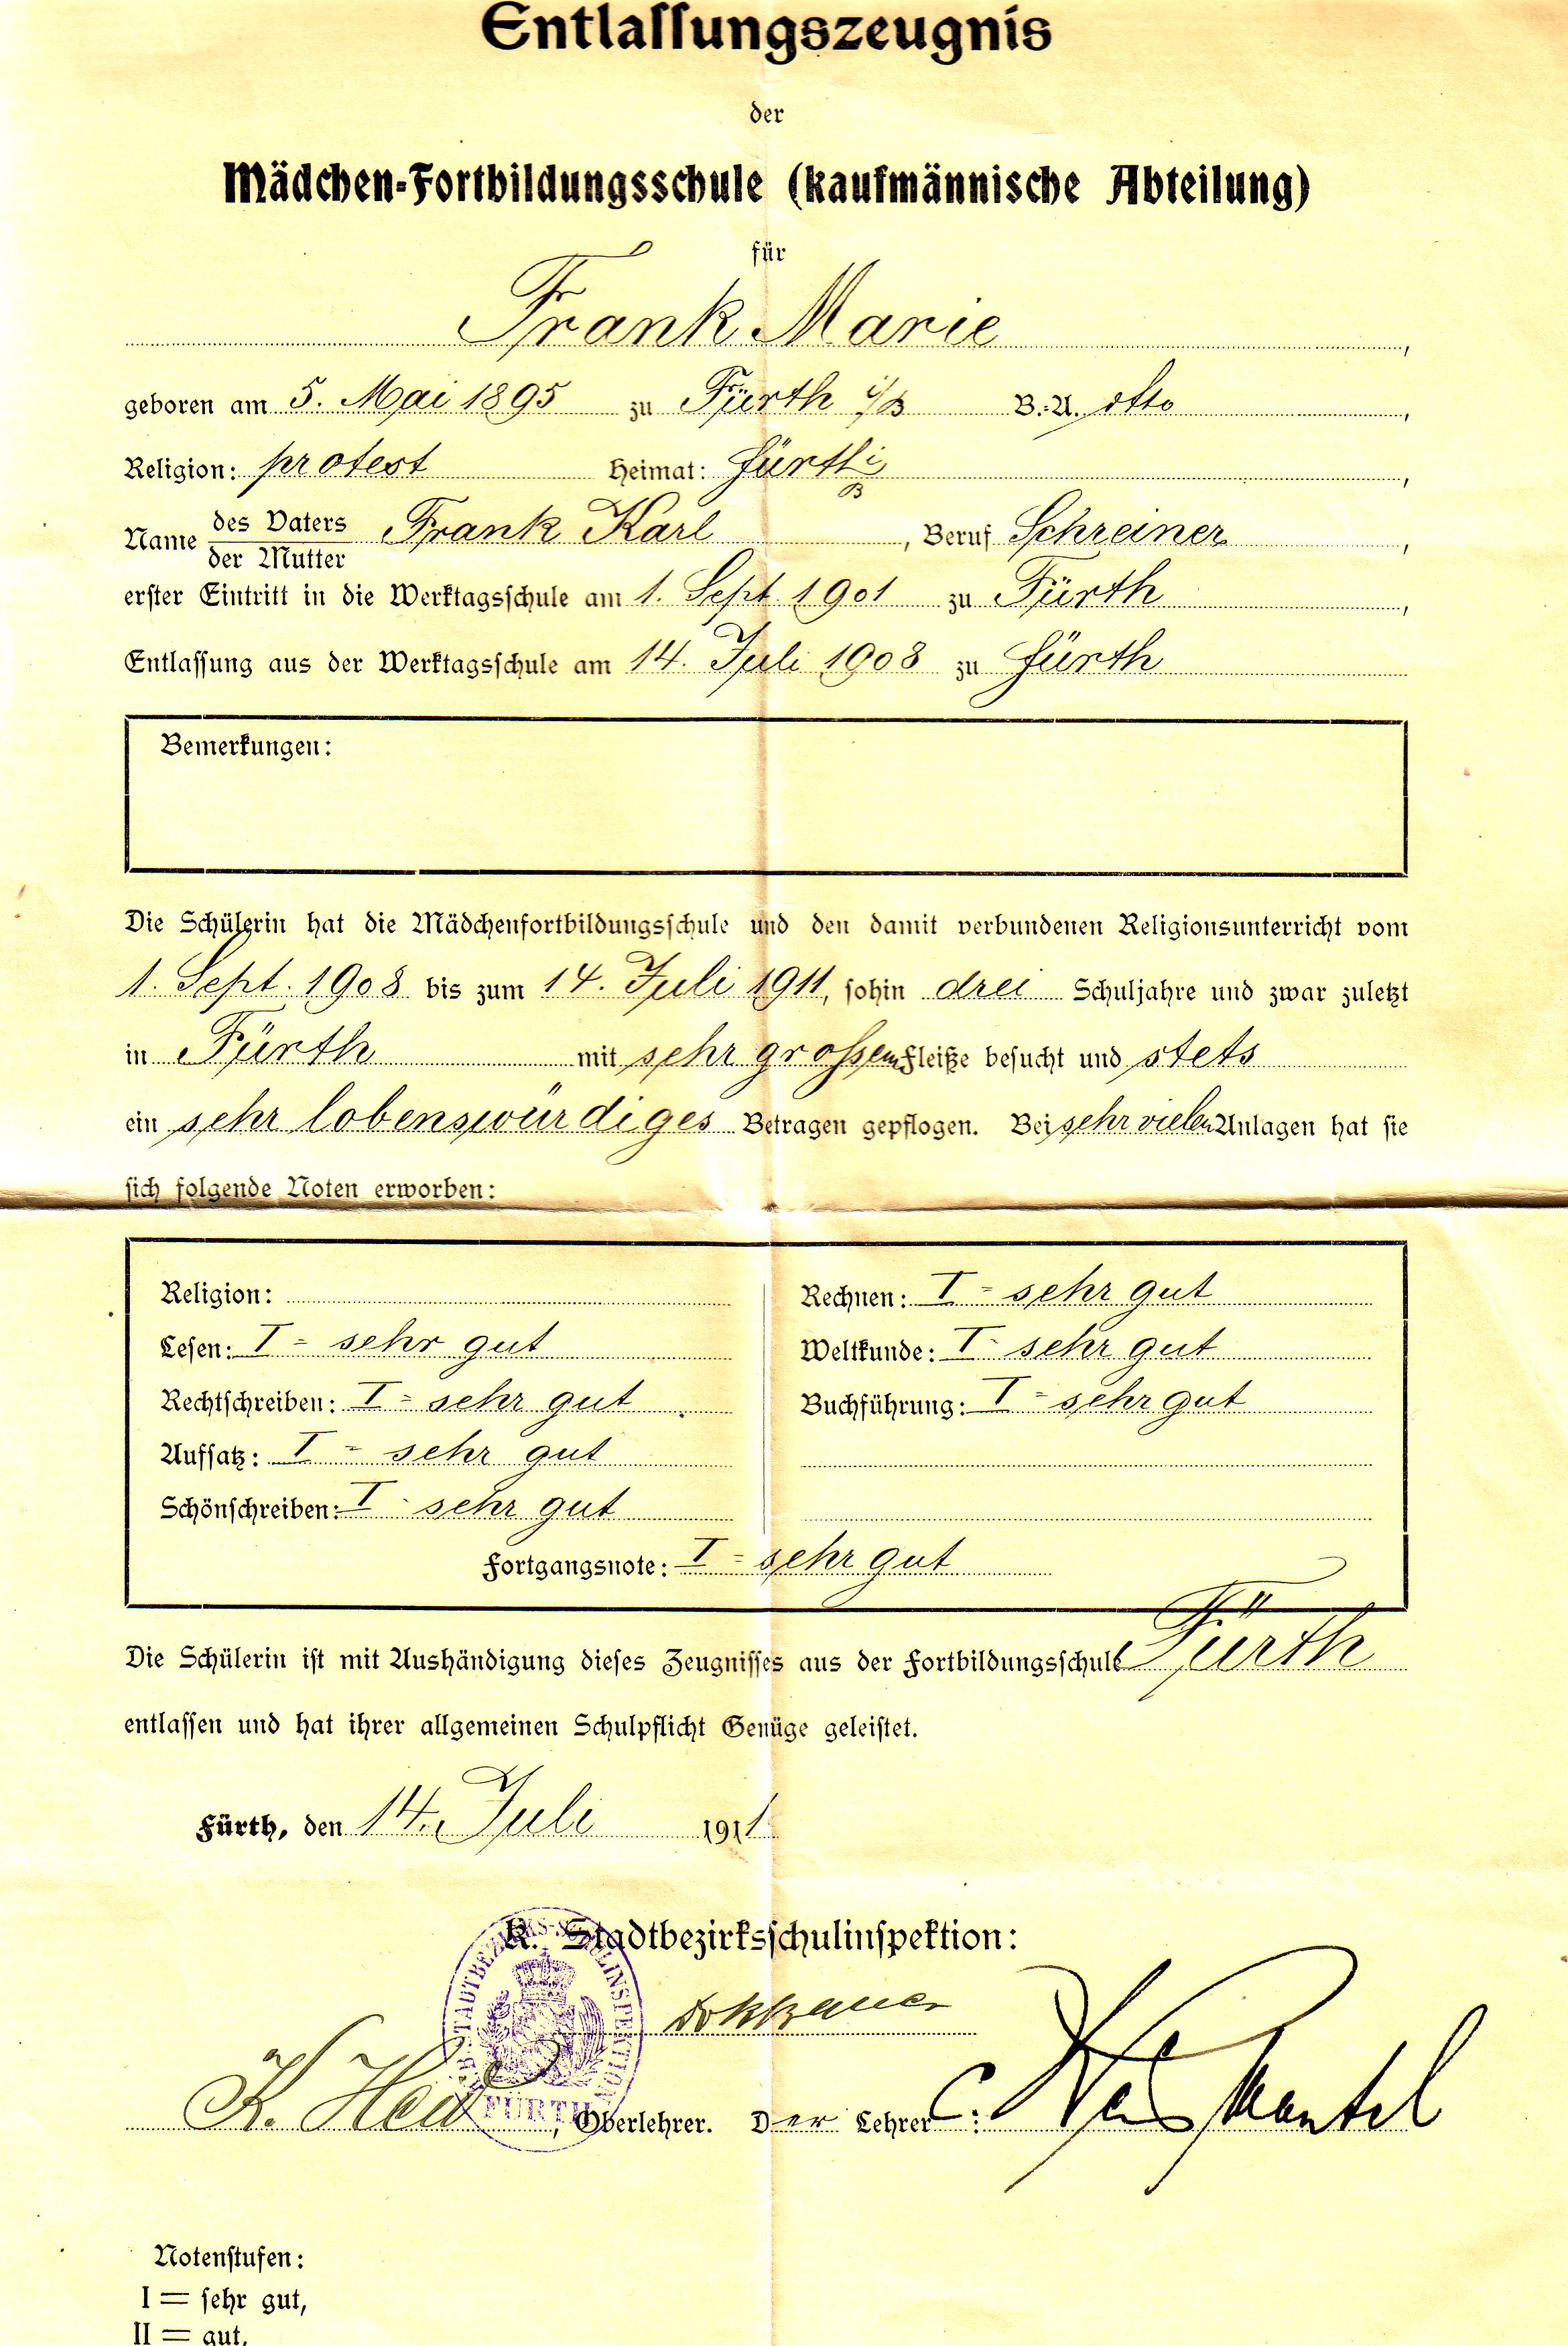 Entlassungszeugnis
der
Mädchen-Fortbildungsschule (kaufmännische Abteilung)
für
Frank Marie,
geboren am 5. Mai 1895 zu Fürth i/B B.-A. dtto,
Religion: protest Heimat: Fürth i B,
Name des Vaters Frank Karl, Beruf Schreiner,
der Mutter
erster Eintritt in die Werktagsschule am 1. Sept. 1901 zu Fürth,
Entlassung aus der Werktagsschule am 14. Juli 1908 zu Fürth
Bemerkungen:
Die Schülerin hat die Mädchenfortbildungsschule und den damit verbundenen Religionsunterricht vom
1. Sept. 1908 bis zum 14. Juli 1911, sohin drei Schuljahre und zwar zuletzt
in Fürth mit sehr grossem Fleiße besucht und stets
ein sehr lobenswürdiges Betragen gepflogen. Bei sehr vielen Anlagen hat sie
sich folgende Noten erworben:
Religion:
Lesen: I = sehr gut
Rechtschreiben: I = sehr gut
Aufsatz: I = sehr gut
Schönschreiben: I - sehr gut
Rechnen: I = sehr gut
Weltkunde: I - sehr gut
Buchführung: I = sehr gut
Fortgangsnote: I = sehr gut
Die Schülerin ist mit Aushändigung dieses Zeugnisses aus der Fortbildungsschule Fürth
entlassen und hat ihrer allgemeinen Schulpflicht Genüge geleistet.
Fürth, den 14. Juli 1911
K. Stadtbezirksschulinspektion:
STADTBEZIRKS-SCHULINSPEKTION
FÜRTH
K. , Oberlehrer. Der Lehrer C:
Notenstufen:
I = sehr gut,
II = gut,